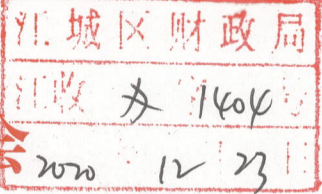 江城区财政局
江收 办 1404 号
2020 12 23